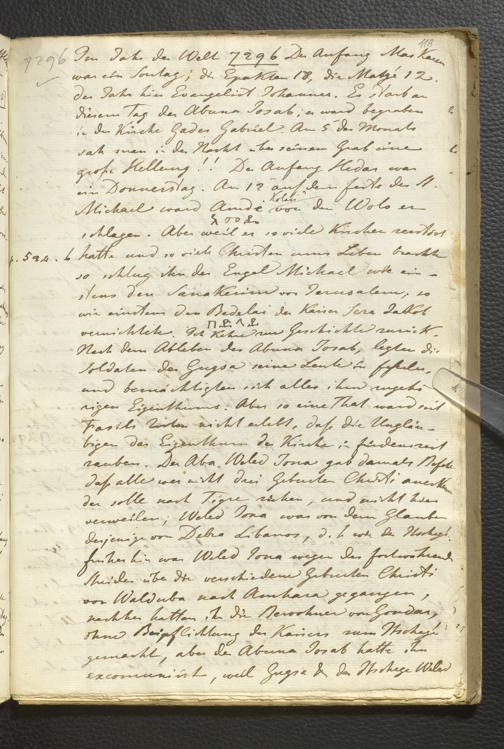 119
7296 Im Jahr der Welt 7296 Der Anfang Maskarem
war ein Sontag; die Epakten 18, die Matqe 12.
der Jahr hies Evangelist Johannes. Es starb an
diesem Tag der Abuna Josab; er ward begraben
in der Kirche Gades Gabriel. Am 5 des Monats
sah man in der Nacht über seinem Grab eine
große Hellung!! Der Anfang Hedar war
ein Donnerstag. Am 12 auf dem feste des St.
Michael ward Andé Kolen von den Wolo er
schlagen. Aber weil er so viele Kirchen zerstört
hatte und so viele Christen ums Leben brachte
so schlug ihn der Engel Michael wie ein-
stens den Sanakerim vor Jerusalem, so
wie einstens den Bedelai der Kaiser Sera Jakob
vernichtete. Ich kehre zur Geschichte zurück.
Nach dem Ableben des Abuna Josab, legten die
Soldaten des Gugsa seine Leute in fesseln,
und bemächtigten sich alles ihm zugehö-
rigen Eigenthums. Aber so eine That ward seit
Fasils Zeiten nicht erlebt, daß die Unglän-
bigen das Eigenthum der Kirche
rauben. Der Aba Weled Jona gab damals Befehl
daß alle wer nicht drei Geburten Christi anerken
der solle nach Tigre ziehen, und nicht hier
verweilen; Weled Jona war von dem Glauben
derjenige von Debra Libanos, d. h. von der
früherhin war Weled Jona wegen des fortwährend
Streides über die verschiedene Geburten Christi
von Walduba nach Amhara gegangen,
nachher hatten ihn die Bewohner von Gondar,
ohne Beipflichtung des Kaisers zum Itschege
gemacht, aber der Abuna Josab hatte ihn
excomunicirt, weil Gugsa den Itschege Weled